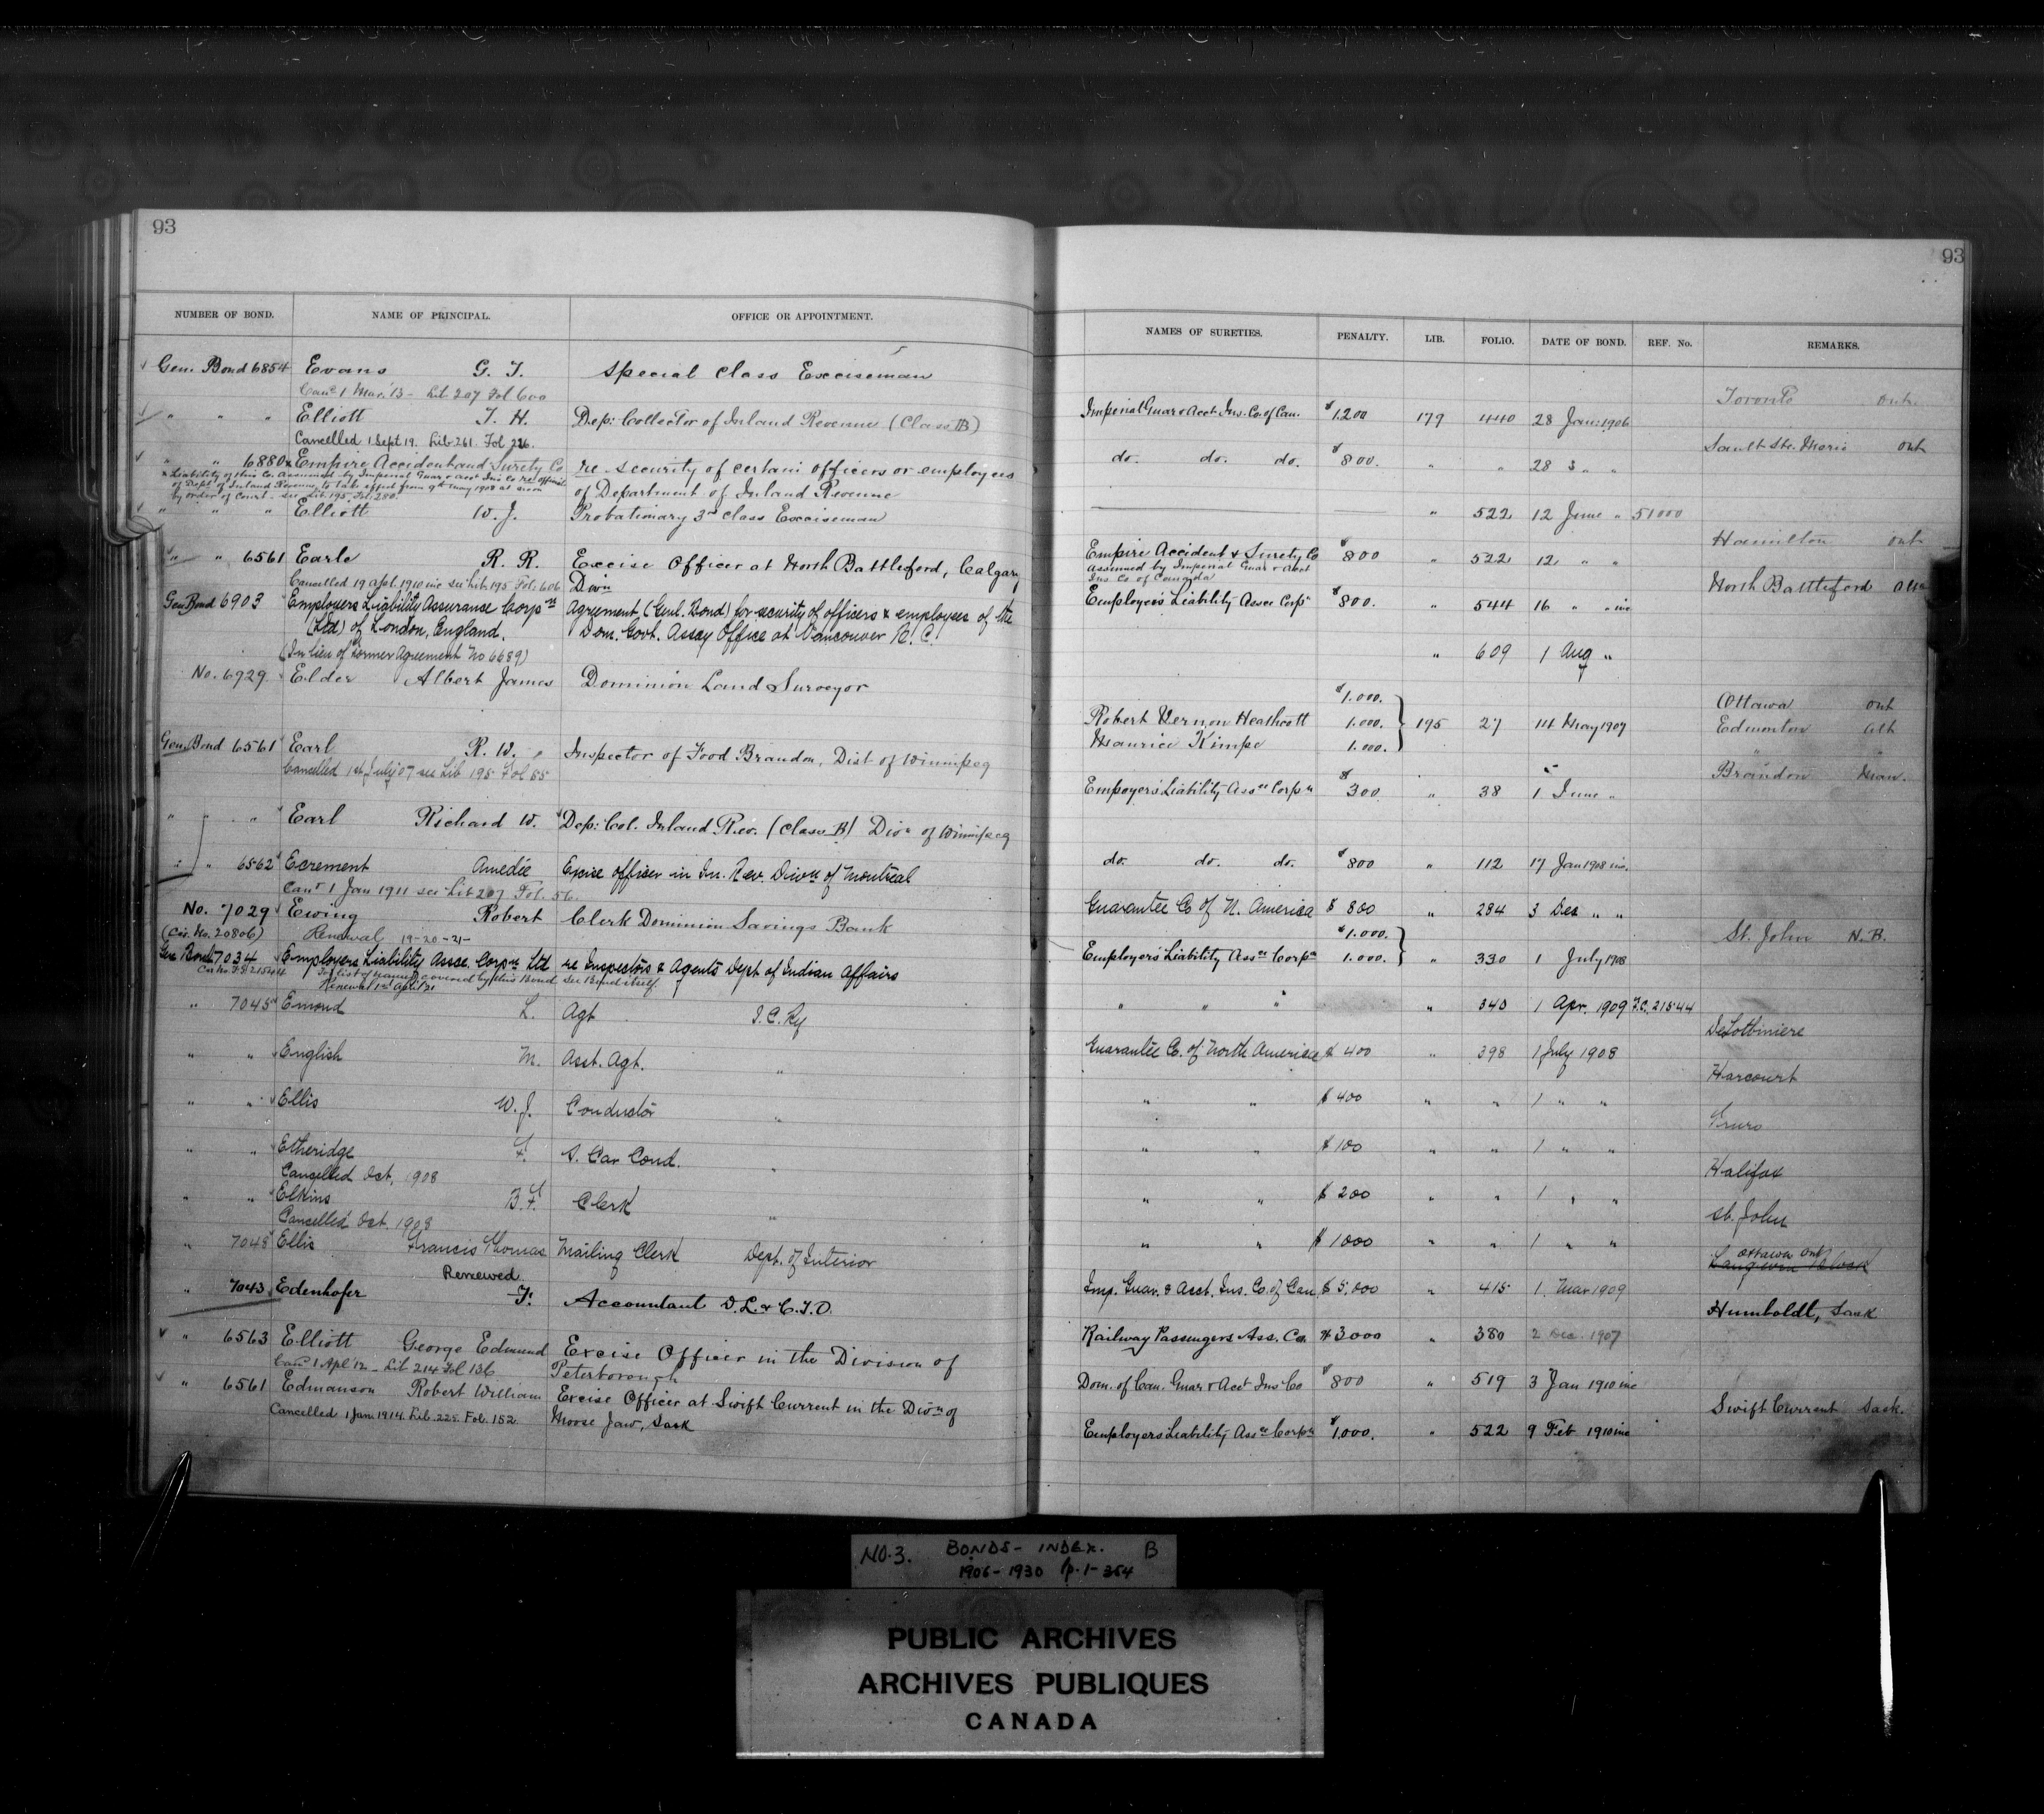 93
93
NUMBER OF BOND. NAME OF PRINCIPAL. OFFICE OR APPOINTMENT. NAMES OF SURETIES. PENALTY. LIB. FOLIO. DATE OF BOND. REF. No. REMARKS.
Gen. Bond 6854 Evans G. T. Special Class Exciseman
Canc. 1 Mar. 13 - Lib. 207 Fol 600
" " " Elliott T. H. Dep: Collector of Inland Revenue (Class B)
Cancelled 1 Sept 19. Lib. 261. Fol 226.
" " 6880 x Empire Accident and Surety Co re security of certain officers or employees
x Liability of this Co. Assumed by Imperial Guar & Acct Ins Co re officials
of Dept. of Inland Revenue, to take effect from 9th May 1908
by order of Court - see Lib. 195. Fol. 280.
of Department of Inland Revenue
" " " Elliott W. J. Probationary 3rd class Exciseman
" " 6561 Earle R. R. Excise Officer at North Battleford, Calgary
Cancelled 19 Apl. 1910 inc see Lib. 195 Fol. 606 Divn
Gen Bond 6903 Employers Liability Assurance Corpn Agreement (Genl. Bond) for security of officers & employees of the
(Ltd) of London, England. Dom. Govt. Assay Office at Vancouver B. C.
(In lieu of former Agreement No 6689)
No. 6929 Elder Albert James Dominion Land Surveyor
Gen. Bond 6561 Earl R. W. Inspector of Food Brandon, Dist of Winnipeg
Cancelled 1st July 07 see Lib 195 Fol 85
" " " Earl Richard W. Dep: Col. Inland Rev. (Class B) Divn of Winnipeg
" " 6562 Ecrement Amedée Excise officer in In. Rev. Divn of Montreal
Canc 1 Jan 1911 see Lib 207 Fol. 56
No. 7029 Ewing Robert Clerk Dominion Savings Bank
(Cir. No. 20806) Renewal 19-20-21-
Gen Bond 7034 Employers Liability Assce. Corpn Ltd re Inspectors & Agents Dept. of Indian Affairs
For list of names covered by this Bond see Bond itself
Renewal 1st April 21
" 7045 Emond L. Agt I.C. Ry
" " English M. Asst. Agt. "
" " Ellis W. J. Conductor "
" " Etheridge F. S. Car Cond. "
Cancelled Oct. 1908
" " Elkins B. F. Clerk "
Cancelled Oct. 1908
" 7048 Ellis Francis Thomas Mailing Clerk Dept. of Interior
Renewed
" 7043 Edenhofer F. Accountant D. L. & C. T. O.
" 6563 Elliott George Edmund Excise Officer in the Division of
Canc. 1 Apl '12 - Lib 214 Fol 136 Peterborough
" 6561 Edmanson Robert William Excise Officer at Swift Current in the Divn of
Cancelled 1 Jan 1914. Lib. 225. Fol. 152 Moose Jaw, Sask
Toronto Ont.
Imperial Guar & Acct. Ins. Co. of Can. $1200 179 440 28 Jan: 1906
Sault Ste. Marie Ont
do. do. do. $800. " " 28 " "
" 522 12 June " 51000
Hamilton Ont
Empire Accident & Surety Co $800 " 522 12 " "
assumed by Imperial Guar & Acct
Ins Co of Canada
North Battleford Alta
Employers Liability Assce Corpn $800. " 544 16 " " inc
" 609 1 Aug "
$1.000. Ottawa Ont
Robert Vernon Heathcott 1.000. 195 27 14 May 1907 Edmonton Alt
Maurice Kimpe 1.000. " "
Brandon Man.
Employers Liability Assce Corpn $300 " 38 1 June "
do. do. do. $800 " 112 17 Jan 1908 inc.
Guarantee Co of N. America $800 " 284 3 Dec " "
$1.000. St. John N.B.
Employers Liability Assce Corpn 1.000. " 330 1 July 1908
" " " " 340 1 Apr. 1909 F.C. 21544
DeLotbiniere
Guarantee Co. of North America $400 " 398 1 July 1908
Harcourt
" " $400 " " 1 " "
Truro
" " $100 " " 1 " "
Halifax
" " $200 " " 1 " "
St. John
" " $1000 " " 1 " "
Ottawa Ont
Langevin Block
Imp. Guar. & Acct. Ins. Co. of Can $5,000 " 415 1. Mar 1909
Humboldt, Sask
Railway Passengers Ass. Co. $3000 " 380 2 Dec. 1907
Dom. of Can. Guar & Acct Ins Co $800 " 519 3 Jan 1910 inc
Swift Current Sask.
Employers Liability Assce Corpn $1.000. " 522 9 Feb 1910 inc
NO. 3. BONDS - INDEX. B
1906-1930 p. 1-354
PUBLIC ARCHIVES
ARCHIVES PUBLIQUES
CANADA